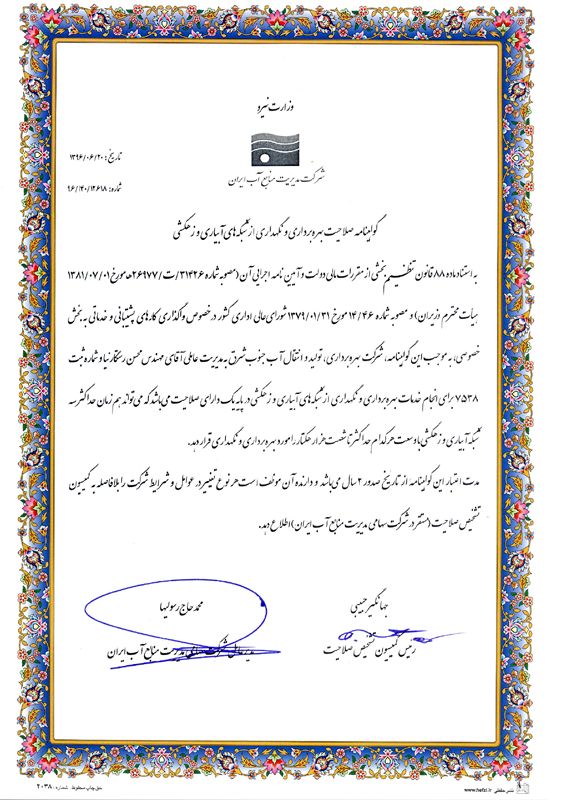 وزارت نیرو
شرکت مدیریت منابع آب ایران
تاریخ: ۱۳۹۶/۰۶/۲۰
شماره: ۹۶/۴۰/۱۲۶۱۸
گواهینامه صلاحیت بهره برداری و نگهداری از شبکه های آبیاری و زهکشی
به استناد ماده ۸۸ قانون تنظیم بخشی از مقررات مالی دولت و آیین نامه اجرایی آن (مصوبه شماره ۳۱۴۲۶/ت/۲۶۹۷۷ه مورخ ۱۳۸۱/۰۷/۰۱
هیأت محترم وزیران) و مصوبه شماره ۱۴/۴۶ مورخ ۱۳۷۹/۰۱/۳۱ شورای عالی اداری کشور در خصوص واگذاری کارهای پشتیبانی و خدماتی به بخش
خصوصی، به موجب این گواهینامه، شرکت بهره برداری، تولید و انتقال آب جنوب شرق به مدیریت عاملی آقای مهندس محسن رستگارنیا و شماره ثبت
۷۵۳۸ برای انجام خدمات بهره برداری و نگهداری از شبکه های آبیاری و زهکشی در پایه یک دارای صلاحیت می باشد که می تواند هم زمان حداکثر سه
شبکه آبیاری و زهکشی با وسعت هر کدام حداکثر تا شصت هزار هکتار را مورد بهره برداری و نگهداری قرار دهد.
مدت اعتبار این گواهینامه از تاریخ صدور ۲ سال می باشد و دارنده آن موظف است هر نوع تغییر در عوامل و شرایط شرکت را بلافاصله به کمیسیون
تشخیص صلاحیت (مستقر در شرکت سهامی مدیریت منابع آب ایران) اطلاع دهد.
جهانگیر حبیبی
رئیس کمیسیون تشخیص صلاحیت
محمد حاج رسولیها
مدیرعامل شرکت سهامی مدیریت منابع آب ایران
نشر حفظی www.hefzi.ir
حق چاپ محفوظ شماره: ۲۰۳۸